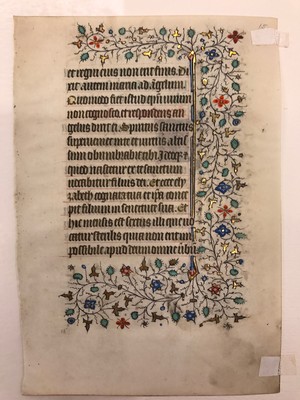 et regni eius non erit finis. Di
xit autem maria ad angelum
Quomodo fiet istud quoniam virum
non cognosco. et respondens an
gelus dixit ei. Spiritus sanctus
superveniet in te et virtus altis
simi obumbrabit tibi. Ideoque et
quod nascetur ex te sanctum
vocabitur filius dei. Et ecce ely
zabeth cognata tua et ipsa conce
pit filium in senectute sua. Et
hic mensis est sextus illi que vo
catur sterilis quia non erit im
possibile apud deum omne verbum